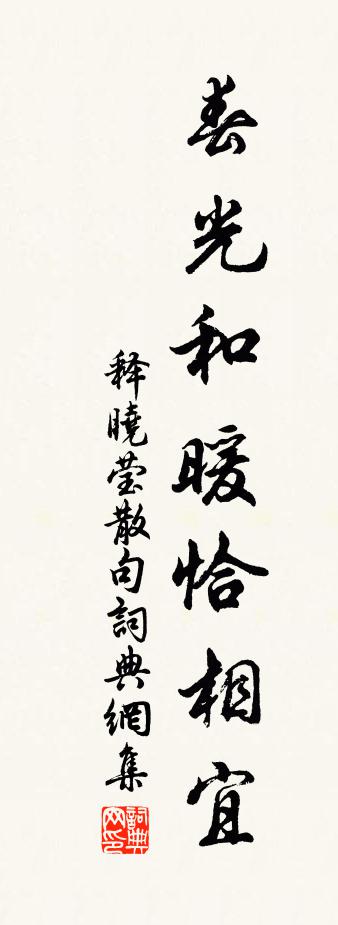 春光和暖恰相宜
释曉莹散句詞典網集
詞典网印